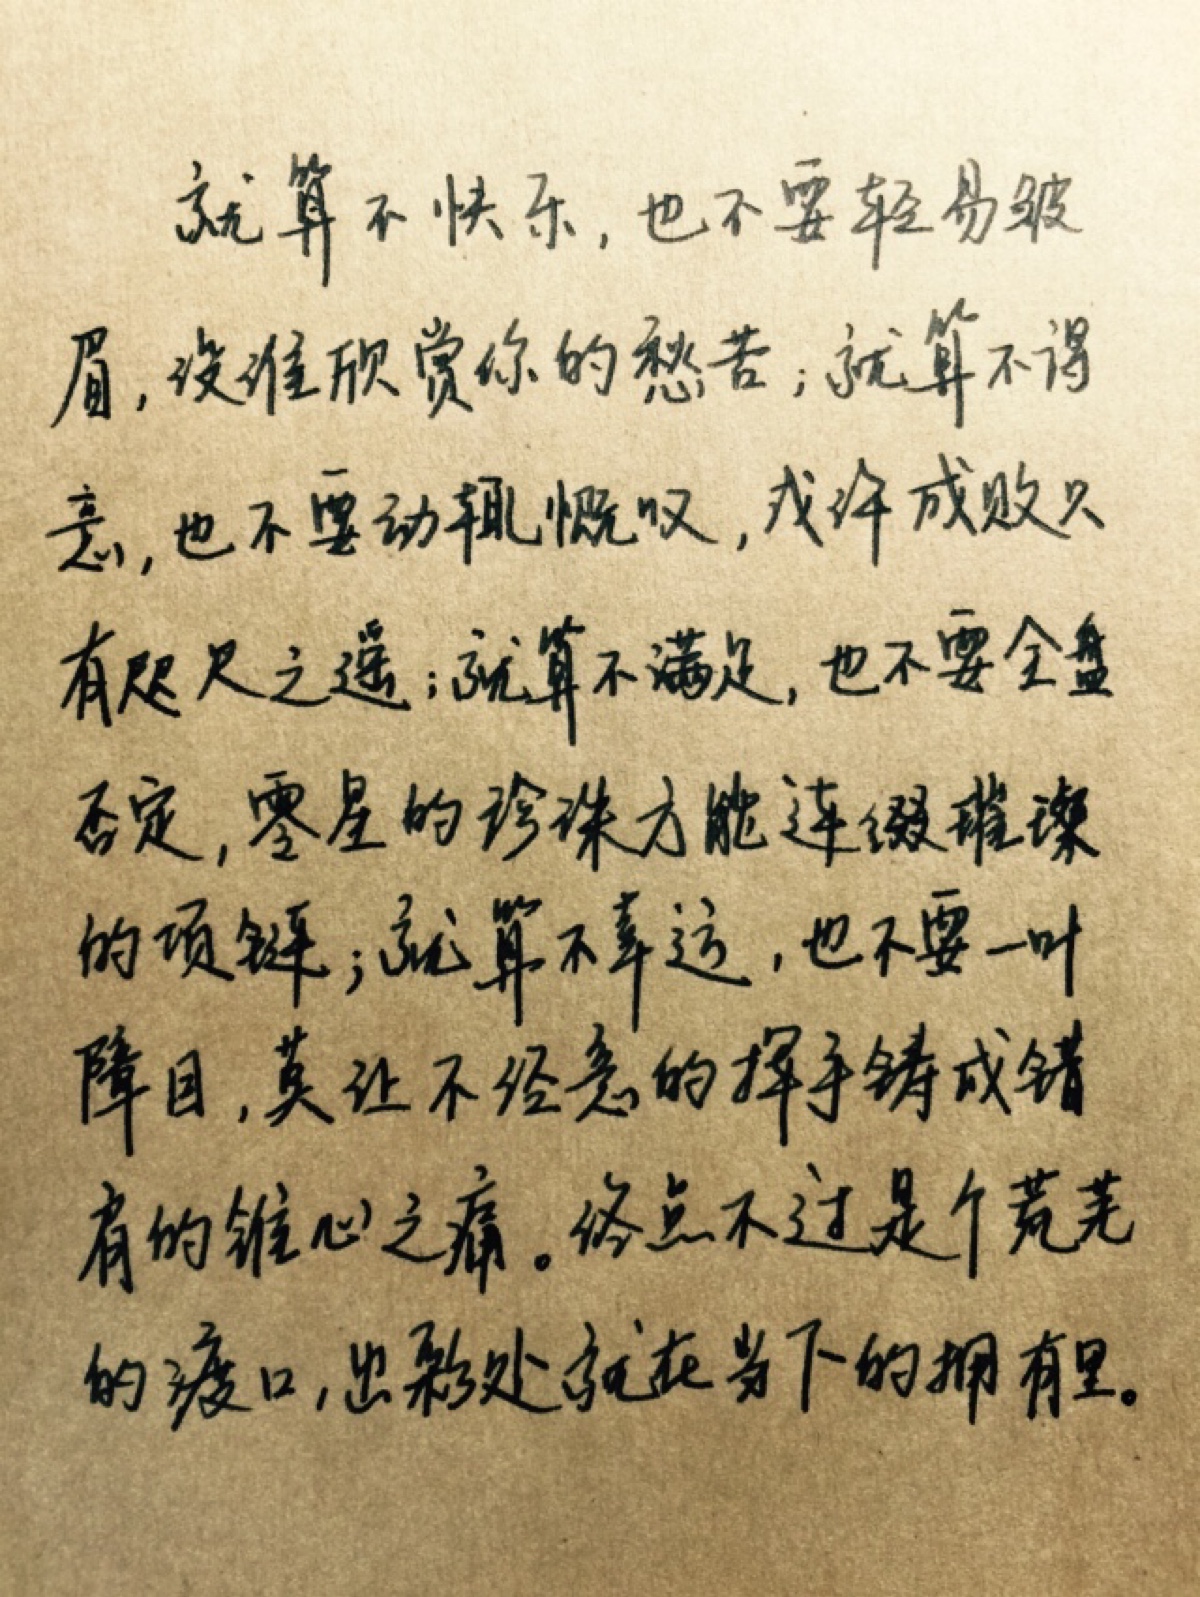 就算不快乐，也不要轻易皱
眉，没谁欣赏你的愁苦；就算不得
意，也不要动辄慨叹，或许成败只
有咫尺之遥；就算不满足，也不要全盘
否定，零星的珍珠方能连缀璀璨
的项链；就算不幸运，也不要一叶
障目，莫让不经意的挥手铸成错
肩的锥心之痛。终点不过是个荒芜
的渡口，出彩处就在当下的拥有里。